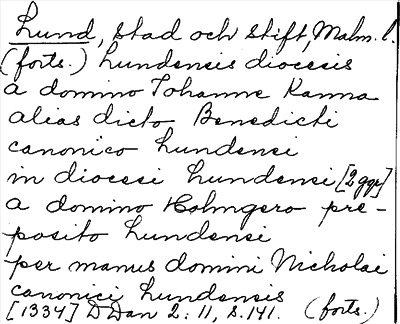 Lund, stad och stift, Malm. l.
(forts.) Lundensis diocesis
a domino Johanne Kanna
alias dicto Benedicti
canonico Lundensi
in diocesi Lundensi [2 ggr]
a domino Holmgero pre-
posito Lundensi
per manus domini Nicholai
canonici Lundensis
[1334] DDan 2:11, s. 141. (forts.)